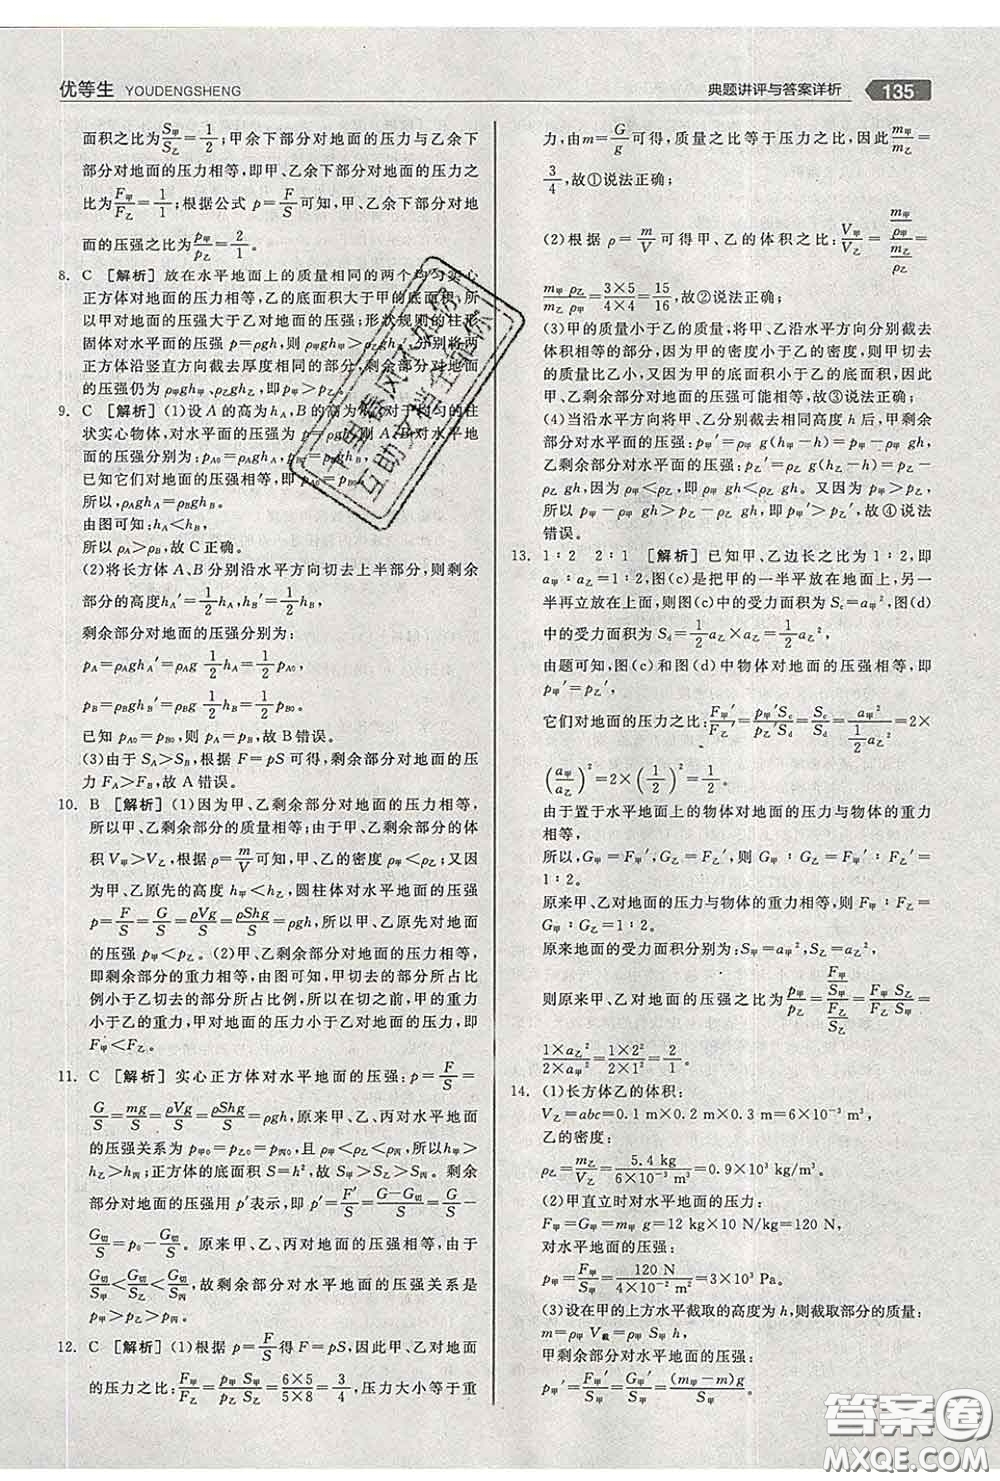 优等生 YOUDENGSHENG
典题讲评与答案详析 135
面积之比为S甲/S乙=1/2；甲余下部分对地面的压力与乙余下
部分对地面的压力相等，即甲、乙余下部分对地面的压力之
比为F甲/F乙=1/1；根据公式 p=F/S可知，甲、乙余下部分对地
面的压强之比为p甲/p乙=2/1。
8. C [解析] 放在水平地面上的质量相同的两个均匀实心
正方体对地面的压力相等，乙的底面积大于甲的底面积，所
以甲对地面的压强大于乙对地面的压强；形状规则的柱形
固体对水平面的压强 p=ρgh，ρ甲gh甲＞ρ乙gh乙，分别将两
正方体沿竖直方向截去厚度相同的部分，剩余部分对地面
的压强仍为 ρ甲gh甲、ρ乙gh乙，即p甲＞p乙。
9. C [解析] (1)设 A 的高为hA，B 的高为
状实心物体，对水平面的压强为p=ρgh，则 A、B 对水平地
面的压强分别为：pA0=ρAghA，pB0=ρBghB，
已知它们对地面的压强相等，即 pA0=pB0，
所以，ρAghA=ρBghB。
由图可知：hA＜hB，
所以 ρA＞ρB，故 C正确。
(2)将长方体 A、B 分别沿水平方向切去上半部分，则剩余
部分的高度hA′=1/2hA，hB′=1/2hB，
剩余部分对地面的压强分别为：
pA=ρAghA′=ρAg 1/2 hA=1/2 pA0，
pB=ρBghB′=ρBg 1/2 hB=1/2 pB0。
已知 pA0=pB0，则 pA=pB，故 B错误。
(3)由于 SA＞SB，根据 F=pS 可得，剩余部分对地面的压
力 FA＞FB，故 A 错误。
10. B [解析] (1)因为甲、乙剩余部分对地面的压力相等，
所以甲、乙剩余部分的质量相等；由于甲、乙剩余部分的体
积 V甲＞V乙，根据 ρ=m/V可知，甲、乙的密度 ρ甲＜ρ乙；又因
为甲、乙原先的高度 h甲＜h乙，圆柱体对水平地面的压强
p=F/S=G/S=ρVg/S=ρShg/S=ρgh，所以甲、乙原先对地面
的压强 p甲＜p乙。(2)甲、乙剩余部分对地面的压力相等，
即剩余部分的重力相等，因甲切去的部分所占比
例小于乙切去的部分所占比例，所以在切之前，甲的重力
小于乙的重力，甲对地面的压力小于乙对地面的压力，即
F甲＜F乙。
11. C [解析] 实心正方体对水平地面的压强：p=F/S=
G/S=mg/S=ρVg/S=ρShg/S=ρgh，原来甲、乙、丙对水平地面
的压强关系为 p甲0=p乙0=p丙0，且 ρ甲＜ρ乙＜ρ丙，所以h甲＞
h乙＞h丙；正方体的底面积 S=h²，故 S甲＞S乙＞S丙。剩余
部分对地面的压强用 p′表示，即 p′=F′/S=(G-G切)/S=G/S-
G切/S=p0-G切/S。原来甲、乙、丙对地面的压强相等，由于
G切/S甲＜G切/S乙＜G切/S丙，故剩余部分对水平地面的压强关系是
p甲＞p乙＞p丙。
12. C [解析] (1)根据 p=F/S得 F=pS，因此甲、乙对地面
的压力之比：F甲/F乙=p甲 S甲/p乙 S乙=6×5/5×8=3/4，压力大小等于重
力，由m=G/g可得，质量之比等于压力之比，因此m甲/m乙=
3/4，故①说法正确；
(2)根据 ρ=m/V可得甲、乙的体积之比：V甲/V乙=(m甲/ρ甲)/(m乙/ρ乙)=
m甲 ρ乙/m乙 ρ甲=3×5/4×4=15/16，故②说法正确；
(3)甲的质量小于乙的质量，将甲、乙沿水平方向分别截去
体积相等的部分，因为甲的密度小于乙的密度，所以甲剩
余部分的质量可能等于乙剩余部分的质量，又因为甲的底面积小于乙的底面积，
甲剩余部分、乙剩余部分对地面的压强可能相等，故③说法正确；
(4)当沿水平方向将甲、乙分别截去相同高度 h 后，甲剩余
部分对水平面的压强：p甲′=ρ甲 g(h甲-h)=p甲-ρ甲 gh，
乙剩余部分对水平面的压强：p乙′=ρ乙 g(h乙-h)=p乙-ρ乙 gh，
因为 ρ甲＜ρ乙，所以 ρ甲 gh＜ρ乙 gh。又因为 p甲＞p乙，
所以 p甲-ρ甲 gh＞p乙-ρ乙 gh，即 p甲′＞p乙′，故④说法
错误。
13. 1∶2 2∶1 [解析] 已知甲、乙边长之比为 1∶2，即
a甲∶a乙=1∶2，图(c)是把甲的一半平放在地面上，另一
半再立放在上面，则图(c)中的受力面积为 Sc=a甲²，图(d)
中的受力面积为 Sd=1/2a乙×a乙=1/2a乙²，
由题可知，图(c)和图(d)中物体对地面的压强相等，即
p甲′=p乙′，
它们对地面的压力之比：F甲′/F乙′=p甲′Sc/p乙′Sd=Sc/Sd=a甲²/(1/2 a乙²)=2×
(a甲/a乙)²=2×(1/2)²=1/2。
由于置于水平地面上的物体对地面的压力与物体的重力
相等，
所以，G甲=F甲′，G乙=F乙′，则 G甲∶G乙=F甲′∶F乙′=
1∶2。
原来甲、乙对地面的压力与物体的重力相等，则 F甲∶F乙=
G甲∶G乙=1∶2。
原来地面的受力面积分别为：S甲=a甲²，S乙=a乙²，
则原来甲、乙对地面的压强之比为p甲/p乙=(F甲/S甲)/(F乙/S乙)=F甲 S乙/F乙 S甲=
1×a乙²/2×a甲²=1×2²/2×1²=2/1。
14. (1)长方体乙的体积：
V乙=abc=0.1 m×0.2 m×0.3 m=6×10⁻³ m³，
乙的密度：
ρ乙=m乙/V乙=5.4 kg/6×10⁻³ m³=0.9×10³ kg/m³；
(2)甲直立时对水平地面的压力：
F甲=G甲=m甲 g=12 kg×10 N/kg=120 N，
对水平地面的压强：
p甲=F甲/S甲=120 N/4×10⁻² m²=3×10³ Pa。
(3)设在甲的上方水平截取的高度为h，则截取部分的质量：
m=ρ甲 V截=ρ甲 S甲 h，
甲剩余部分对水平地面的压强：
p甲′=F甲′/S甲=G甲′/S甲=(m甲-m)g/S甲=
千里春风不如你
互助文档全能你
答案圈
MXQE.COM